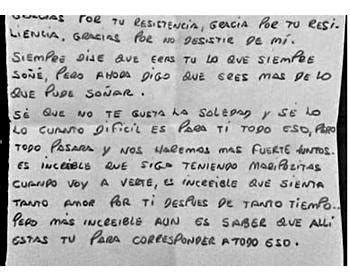 GRACIAS POR TU RESISTENCIA, GRACIA POR TU RESI-
LIENCIA, GRACIAS POR NO DESISTIR DE MÍ.
SIEMPRE DIJE QUE ERAS TU LO QUE SIEMPRE
SOÑE, PERO AHORA DIGO QUE ERES MAS DE LO
QUE PUDE SOÑAR.
SÉ QUE NO TE GUSTA LA SOLEDAD Y SÉ LO
LO CUANTO DIFICIL ES PARA TI TODO ESO, PERO
TODO PASARA Y NOS HAREMOS MAS FUERTE JUNTOS.
ES INCREIBLE QUE SIGA TENIENDO MARIPOZITAS
CUANDO VOY A VERTE, ES INCREIBLE QUE SIENTA
TANTO AMOR POR TI DESPUES DE TANTO TIEMPO..
PERO MÁS INCREIBLE AUN ES SABER QUE ALLI
ESTAS TU PARA CORRESPONDER A TODO ESO.